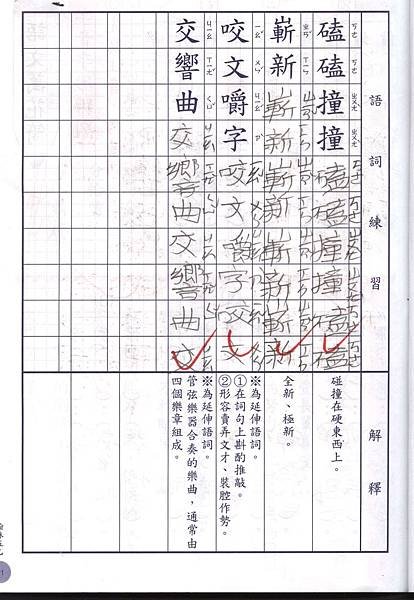 語詞練習 解釋
磕磕撞撞磕磕撞撞磕磕
碰撞在硬東西上。
嶄新嶄新嶄新嶄新嶄新
全新、極新。
咬文嚼字咬文嚼字咬文
※為延伸語詞。
①在詞句上斟酌推敲。
②形容賣弄文才、裝腔作勢。
交響曲交響曲交響曲交
※為延伸語詞。
管弦樂器合奏的樂曲，通常由
四個樂章組成。